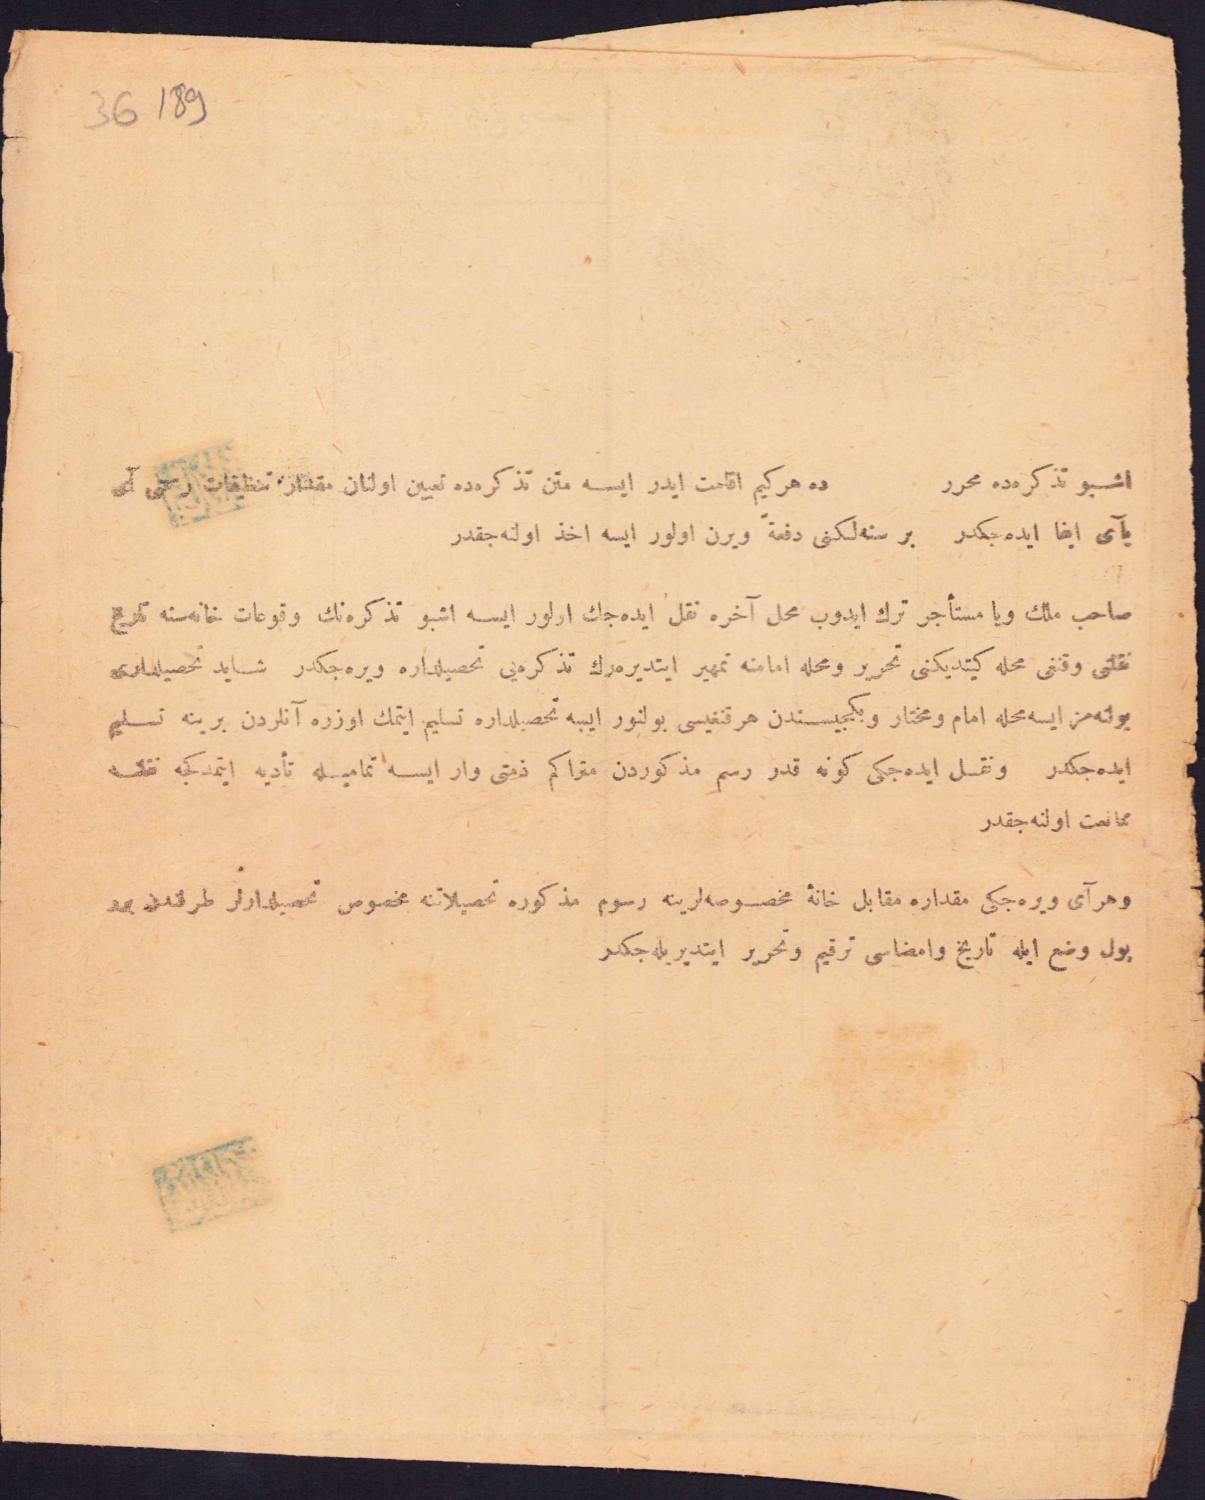 36/89
اشبو تذكره‌ده محرر ده هركيم اقامت ايدر ايسه متن تذكره‌ده تعيين اولنان مقدار تنظيفات رسمى آى
بآى ايفا ايده‌جكدر بر سنه‌لكنى دفعةً ويرن اولور ايسه اخذ اولنه‌جقدر
صاحب ملك ويا مستأجر ترك ايدوب محل آخره نقل ايده‌جك اولور ايسه اشبو تذكره‌نك وقوعات خانه‌سنه تاريخ
نقلنى وقنغى محله كيتديكنى تحرير ومحله امامنه تمهير ايتديره‌رك تذكره‌يى تحصيلداره ويره‌جكدر شايد تحصيلدارى
بولنه‌مز ايسه محله امام ومختار وبكجيسندن هرقنغيسى بولنور ايسه تحصيلداره تسليم ايتمك اوزره آنلردن برينه تسليم
ايده‌جكدر ونقل ايده‌جكى كونه قدر رسم مذكوردن متراكم ذمتى وار ايسه تماميله تأديه ايتمدكجه نقلنه
ممانعت اولنه‌جقدر
وهر آى ويره‌جكى مقداره مقابل خانۀ مخصوصه‌لرينه رسوم مذكوره تحصيلاتنه مخصوص تحصيلدارلر طرفندن
پول وضع ايله تاريخ وامضاسى ترقيم وتحرير ايتديريله‌جكدر